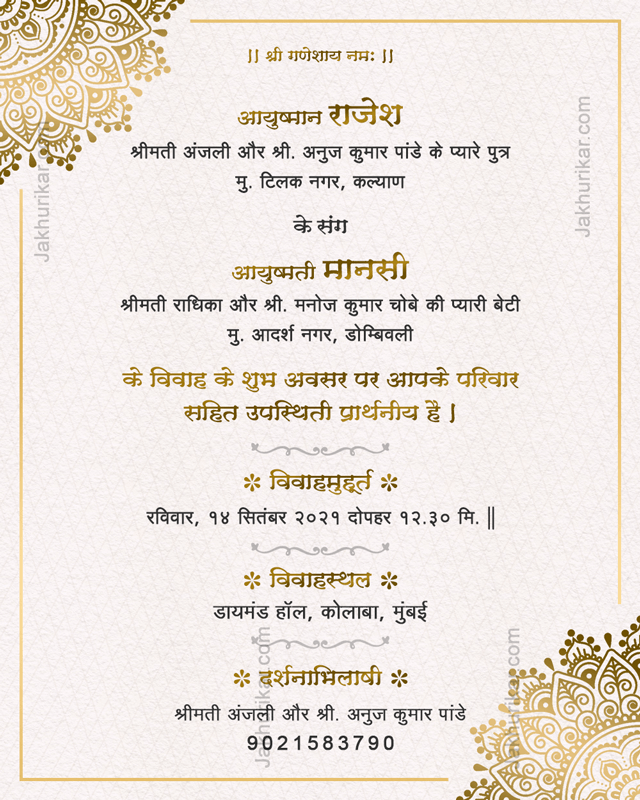 || श्री गणेशाय नमः ||
आयुष्मान राजेश
श्रीमती अंजली और श्री. अनुज कुमार पांडे के प्यारे पुत्र
मु. टिलक नगर, कल्याण
के संग
आयुष्मती मानसी
श्रीमती राधिका और श्री. मनोज कुमार चोबे की प्यारी बेटी
मु. आदर्श नगर, डोम्बिवली
के विवाह के शुभ अवसर पर आपके परिवार
सहित उपस्थिती प्रार्थनीय है |
विवाहमुहूर्त
रविवार, १४ सितंबर २०२१ दोपहर १२.३० मि. ||
विवाहस्थल
डायमंड हॉल, कोलाबा, मुंबई
दर्शनाभिलाषी
श्रीमती अंजली और श्री. अनुज कुमार पांडे
9021583790
Jakhurikar.com
Jakhurikar.com
Jakhurikar.com
Jakhurikar.com